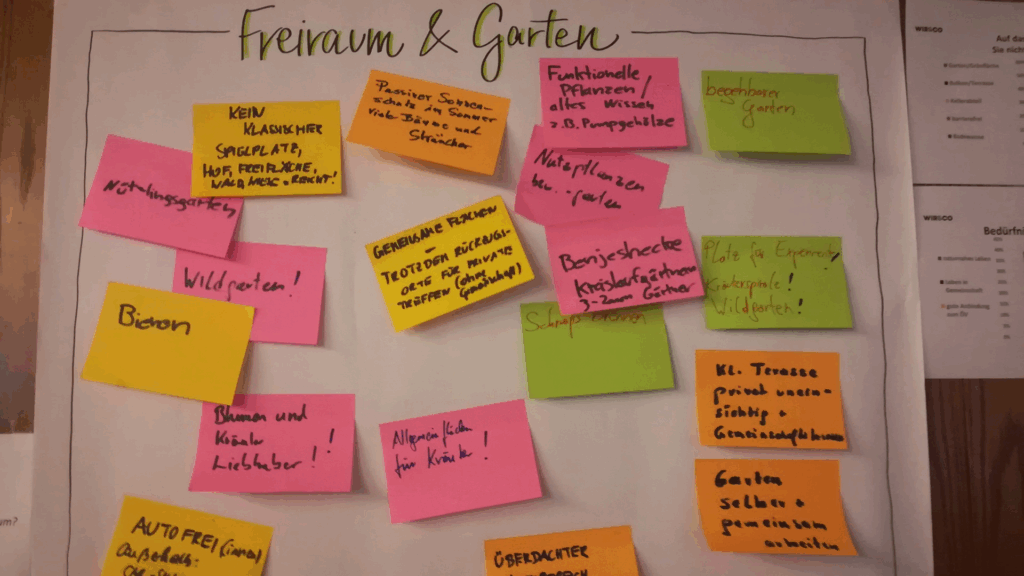 Freiraum & Garten
KEIN
KLASSISCHER
SPIELPLATZ,
HOF, FREIFLÄCHE,
WALD REICHT!
Passiver Sonnen-
schutz im Sommer
viele Bäume und
Sträucher
Funktionelle
Pflanzen/
altes Wissen
z.B. Pumpgehölze
begehbarer
Garten
Nützlingsgarten
Nutzpflanzen
garten
GEMEINSAME FLÄCHEN
–
TROTZDEM RÜCKZUGS-
ORTE FÜR PRIVATE
TREFFEN (ohne
Gemeinschaft)
Benjeshecke
Kreislaufgärtnern
Gärtner
Platz für Experimente,
Kräuterspirale!
Wildgarten!
Wildgarten!
Bienen
Schnaps brennen
Kl. Terasse
privat unein-
sichtig +
Blumen und
Kräuter
Liebhaber!!
Allgemeinflächen
für Kräuter!
Garten
selber +
gemeinsam
arbeiten
AUTOFREI (innen)
außerhalb:
ÜBERDACHTER
WIBGO
Auf da
Sie nich
WIBGO
Bedürfni